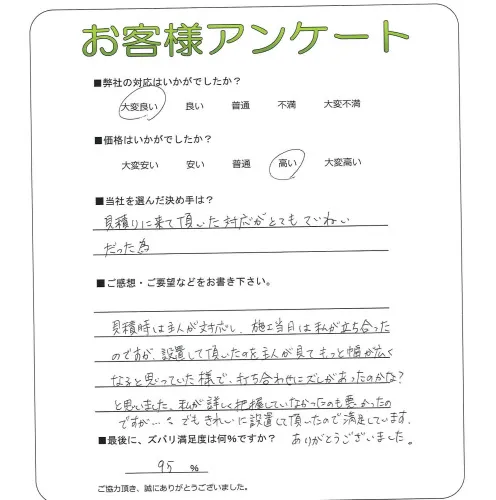 お客様アンケート
■弊社の対応はいかがでしたか？
大変良い　良い　普通　不満　大変不満
■価格はいかがでしたか？
大変安い　安い　普通　高い　大変高い
■当社を選んだ決め手は？
見積りに来て頂いた対応がとてもていねい
だった為
■ご感想・ご要望などをお書き下さい。
見積時は主人が対応し、施工当日は私が立ち合った
のですが、設置して頂いたのを主人が見てもっと幅が広く
なると思っていた様で、打ち合わせにズレがあったのかな？
と思いました。私が詳しく把握していなかったのも悪かったの
ですが…。でもきれいに設置して頂いたので満足しています。
ありがとうございました。
■最後に、ズバリ満足度は何%ですか？
95 %
ご協力頂き、誠にありがとうございました。